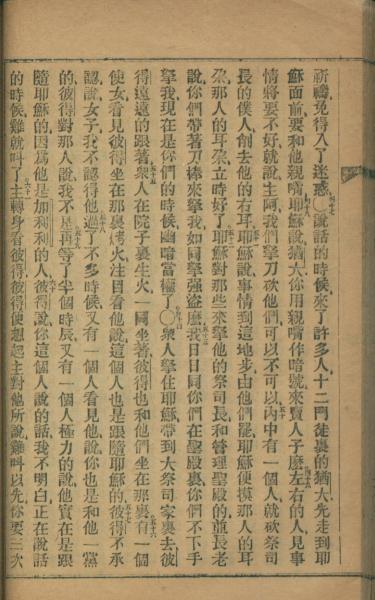 祈禱免得入了迷惑〇說話的時候來了許多人十二門徒裏的猶大先走到耶
穌面前要和他親嘴耶穌說猶大你用親嘴作暗號來賣人子麼左右的人見事
情將要不好就說主阿我們拏刀砍他們可以不可以內中有一個人就砍祭司
長的僕人削去他的右耳耶穌說事情到這地步由他們罷耶穌便摸那人的耳
朶那人的耳朶立時好了耶穌對那些來拏他的祭司長和管理聖殿的董長老
說你們帶著刀棒來拏我如同拏強盜麼我日日同你們在聖殿裏你們不下手
拏我現在是你們的時候幽暗當權了〇衆人拏住耶穌帶到大祭司家裏去彼
得遠遠的跟著衆人在院子裏生火一同坐著彼得也和他們坐在那裏有一個
使女看見彼得坐在那裏火注目看他說這個人也是跟隨耶穌的彼得不承
認說女子我不認得他過了不多時候又有一個人看見他說你也是和他一黨
的彼得對那人說我不是再等了半個時辰又有一個人極力的說他實在是跟
隨耶穌的因爲他是加利利的人彼得說你這個人說的話我不明白正在說話
的時候雞就叫了主轉身看彼得彼得便想起主對他所說雞叫以先你要三次